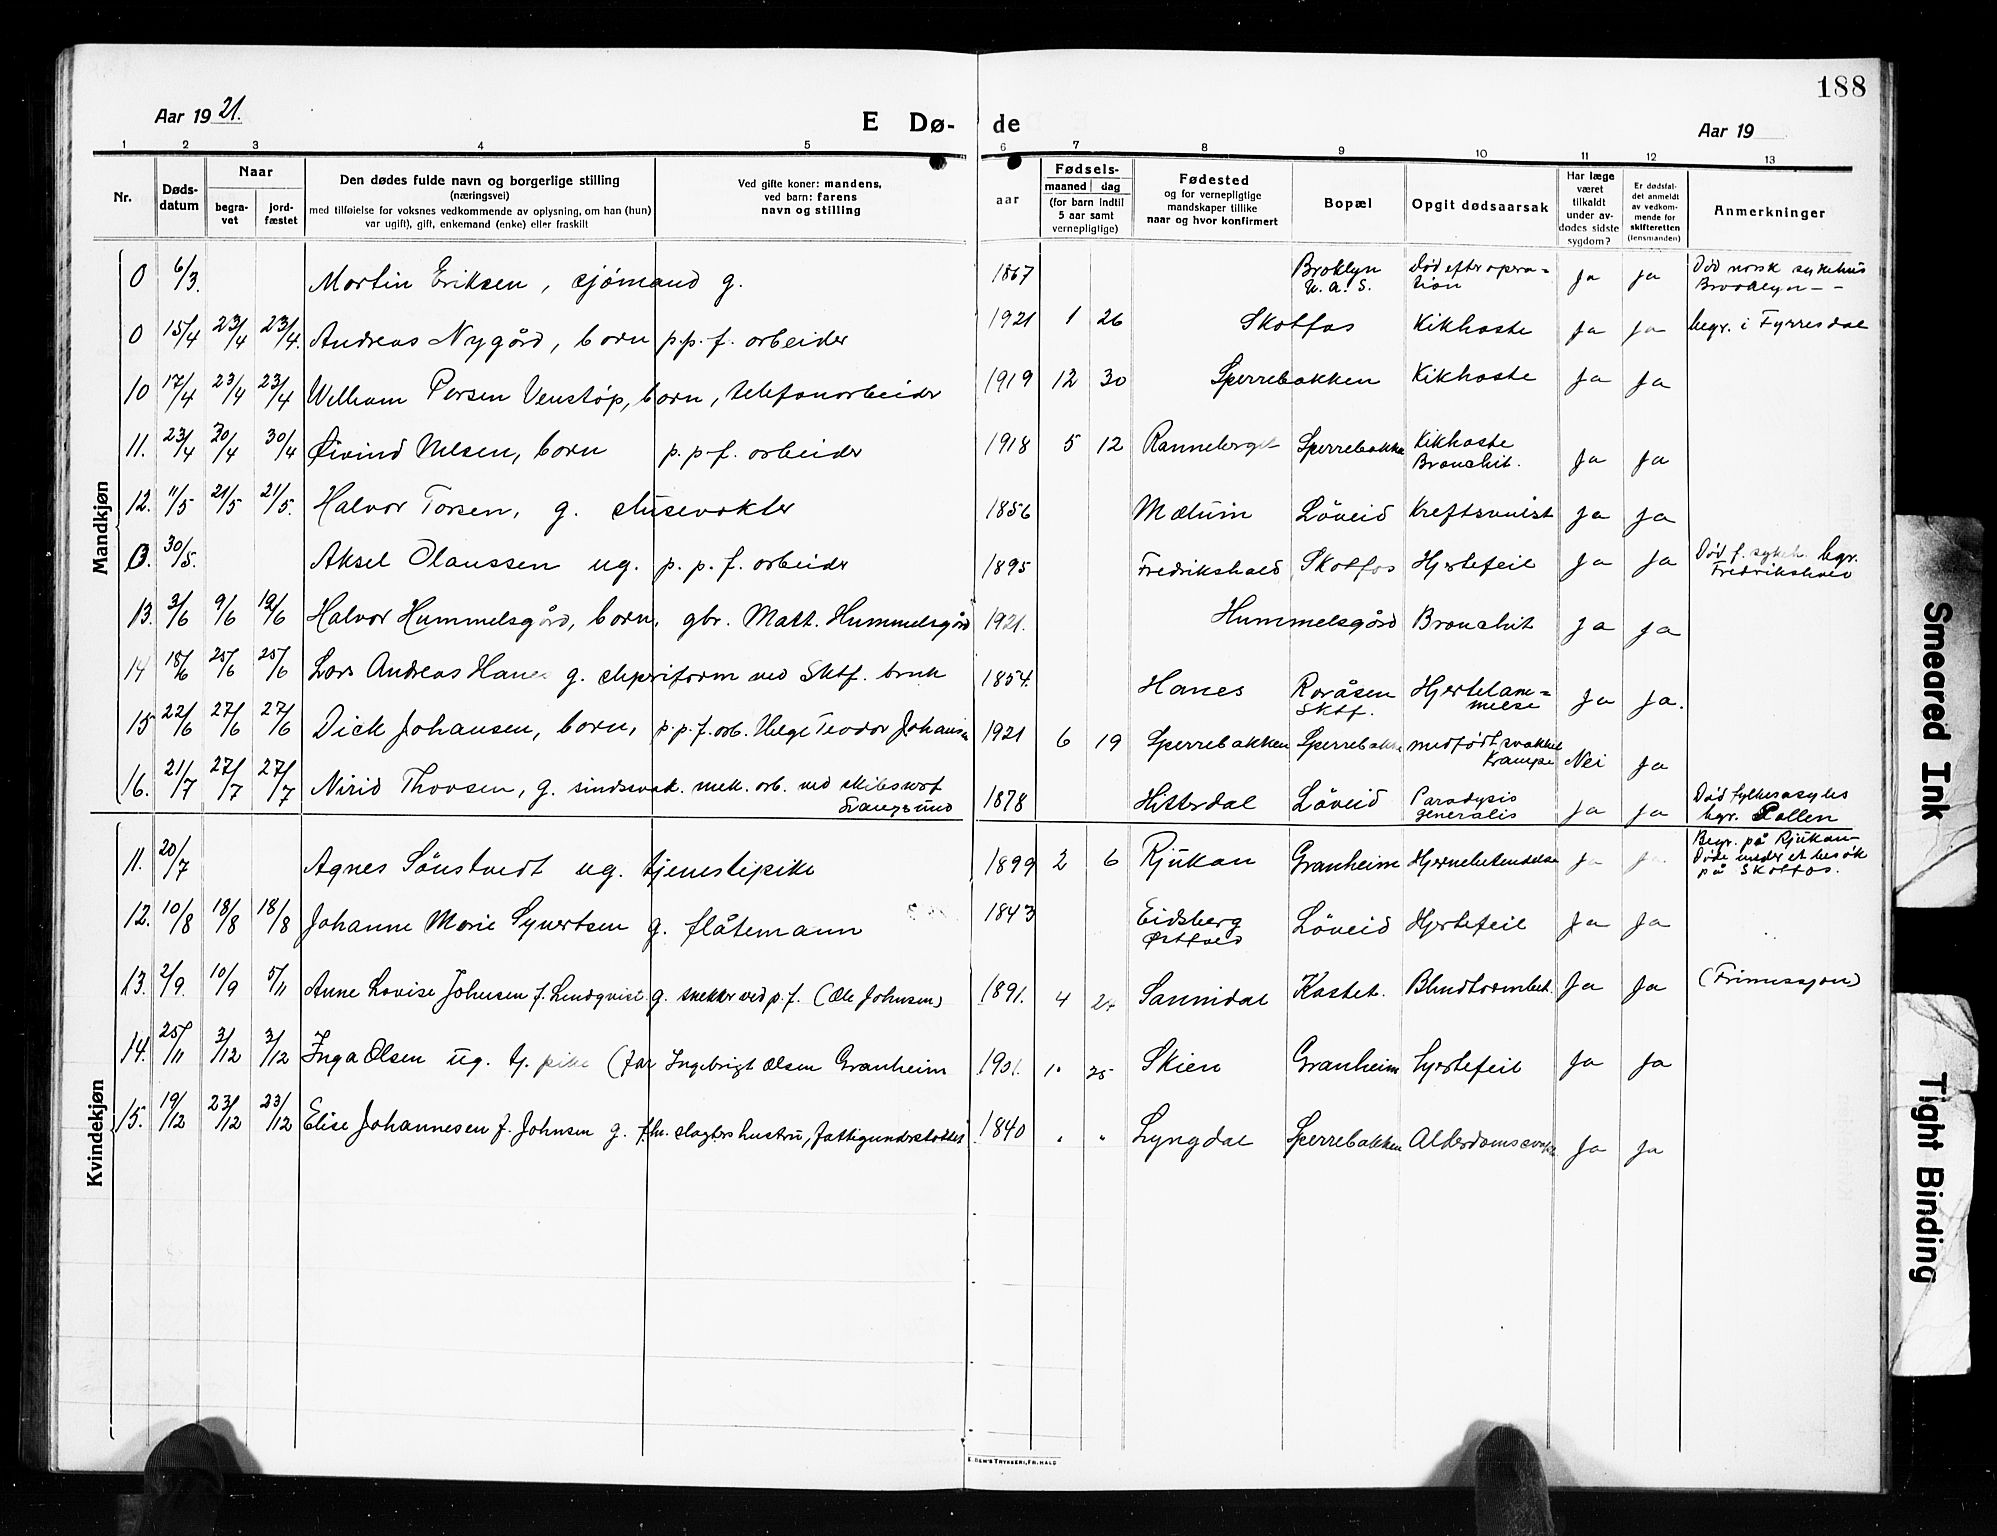 188
Aar 1921.
E Dø- de
Aar 19
1 2 3 4 5 6 7 8 9 10 11 12 13
Nr.
Døds-
datum
Naar
begra-
vet
jord-
fæstet
Den dødes fulde navn og borgerlige stilling
(næringsvei)
med tilføielse for voksnes vedkommende av oplysning, om han (hun)
var ugift), gift, enkemand (enke) eller fraskilt
Ved gifte koner: mandens,
ved barn: farens
navn og stilling
aar
Fødsels-
maaned dag
(for barn indtil
5 aar samt
vernepligtige)
Fødested
og for vernepligtige
mandskaper tillike
naar og hvor konfirmert
Bopæl
Opgit dødsaarsak
Har læge
været
tilkaldt
under av-
dødes sidste
sygdom?
Er dødsfal-
det anmeldt
av vedkom-
mende for
skifteretten
(lensmanden)
Anmerkninger
Mandkjøn
0 6/3. Martin Eriksen, sjømand g. 1867 Broklyn U.a.S. Død efter opera-tion Ja Ja Død norsk sykehus Brooklyn - -
0 15/4 23/4 23/4. Andreas Nygård, barn p.p.f. arbeider 1921 1 26 Skotfos Kikhoste Ja Ja begr. i Fyrresdal
10 17/4 23/4 23/4 Welham Persen Venstøp, barn, telefonarbeider 1919 12 30 Sperrebakken Kikhoste Ja Ja
11. 23/4 30/4 30/4 Øivind Nilsen, barn p.p.f. arbeider 1918 5 12 Ranneberget Sperrebakken Kikhoste Bronchit. Ja Ja
12. 11/5 21/5 21/5. Halvor Torsen, g. slusevakter 1856 Mælum Løveid Kreftsvulst Ja Ja
0. 30/5. Aksel Olaussen ug. p.p.f. arbeider 1895 Fredrikshald Skotfos Hjertefeil Ja Ja Død f. sykeh. begr. Fredrikshald
13. 3/6 9/6 19/6 Halvor Hummelsgård, barn, gbr. Matt. Hummelsgård 1921. Hummelsgård Bronchit Ja Ja
14 18/6 25/6 25/6 Lars Andreas Hanes g. sliperiform ved Sktf. bruk 1854. Hanes Roråsen Sktf. Hjertelam-melse Ja Ja.
15 22/6 27/6 27/6 Dick Johansen, barn, p.p.f. arb. Helge Teodor Johansen 1921 6 19 Sperrebakken Sperrebakken medfødt svakhet Krampe Nei Ja
16. 21/7 27/7 27/7 Nirid Thovsen, g. sindssvak. mek. arb. ved skibsverf Frangsund 1878 Hitterdal Løveid Paralysis generalis Ja Ja Død fylkesasyles begr. Pollen
Kvindekjøn
11. 20/7 Agnes Sønstvedt ug. tjenestepike 1899 2 6 Rjukan Granheim Hjernebetendelse Ja Ja Begr. på Rjukan- Døde under et besøk på Skotfos.
12. 10/8 18/8 18/8 Johanne Marie Syvertsen g. flåtemann 1843 Eidsberg Østfold Løveid Hjertefeil Ja Ja
13. 2/9. 10/9 5/11 Anne Lovise Johnsen f. Lindqvist g. snekker ved p.f. (Ole Johnsen) 1891. 4 24 Sannidal Kastet. Blindtarmbet. Ja Ja (Frimisjon)
14. 25/11 3/12 3/12 Inga Olsen ug. tj. pike (far Ingebrigt Olsen Granheim 1901. 10 25 Skien Granheim Hjertefeil Ja Ja
15. 19/12 23/12 23/12 Elise Johannesen f. Johnsen g. fhv. slagters hustru, fattigunderstøttet 1840 " " Lyngdal Sperrebakken Alderdomssvakh. Ja Ja
Smeared Ink
Tight Binding